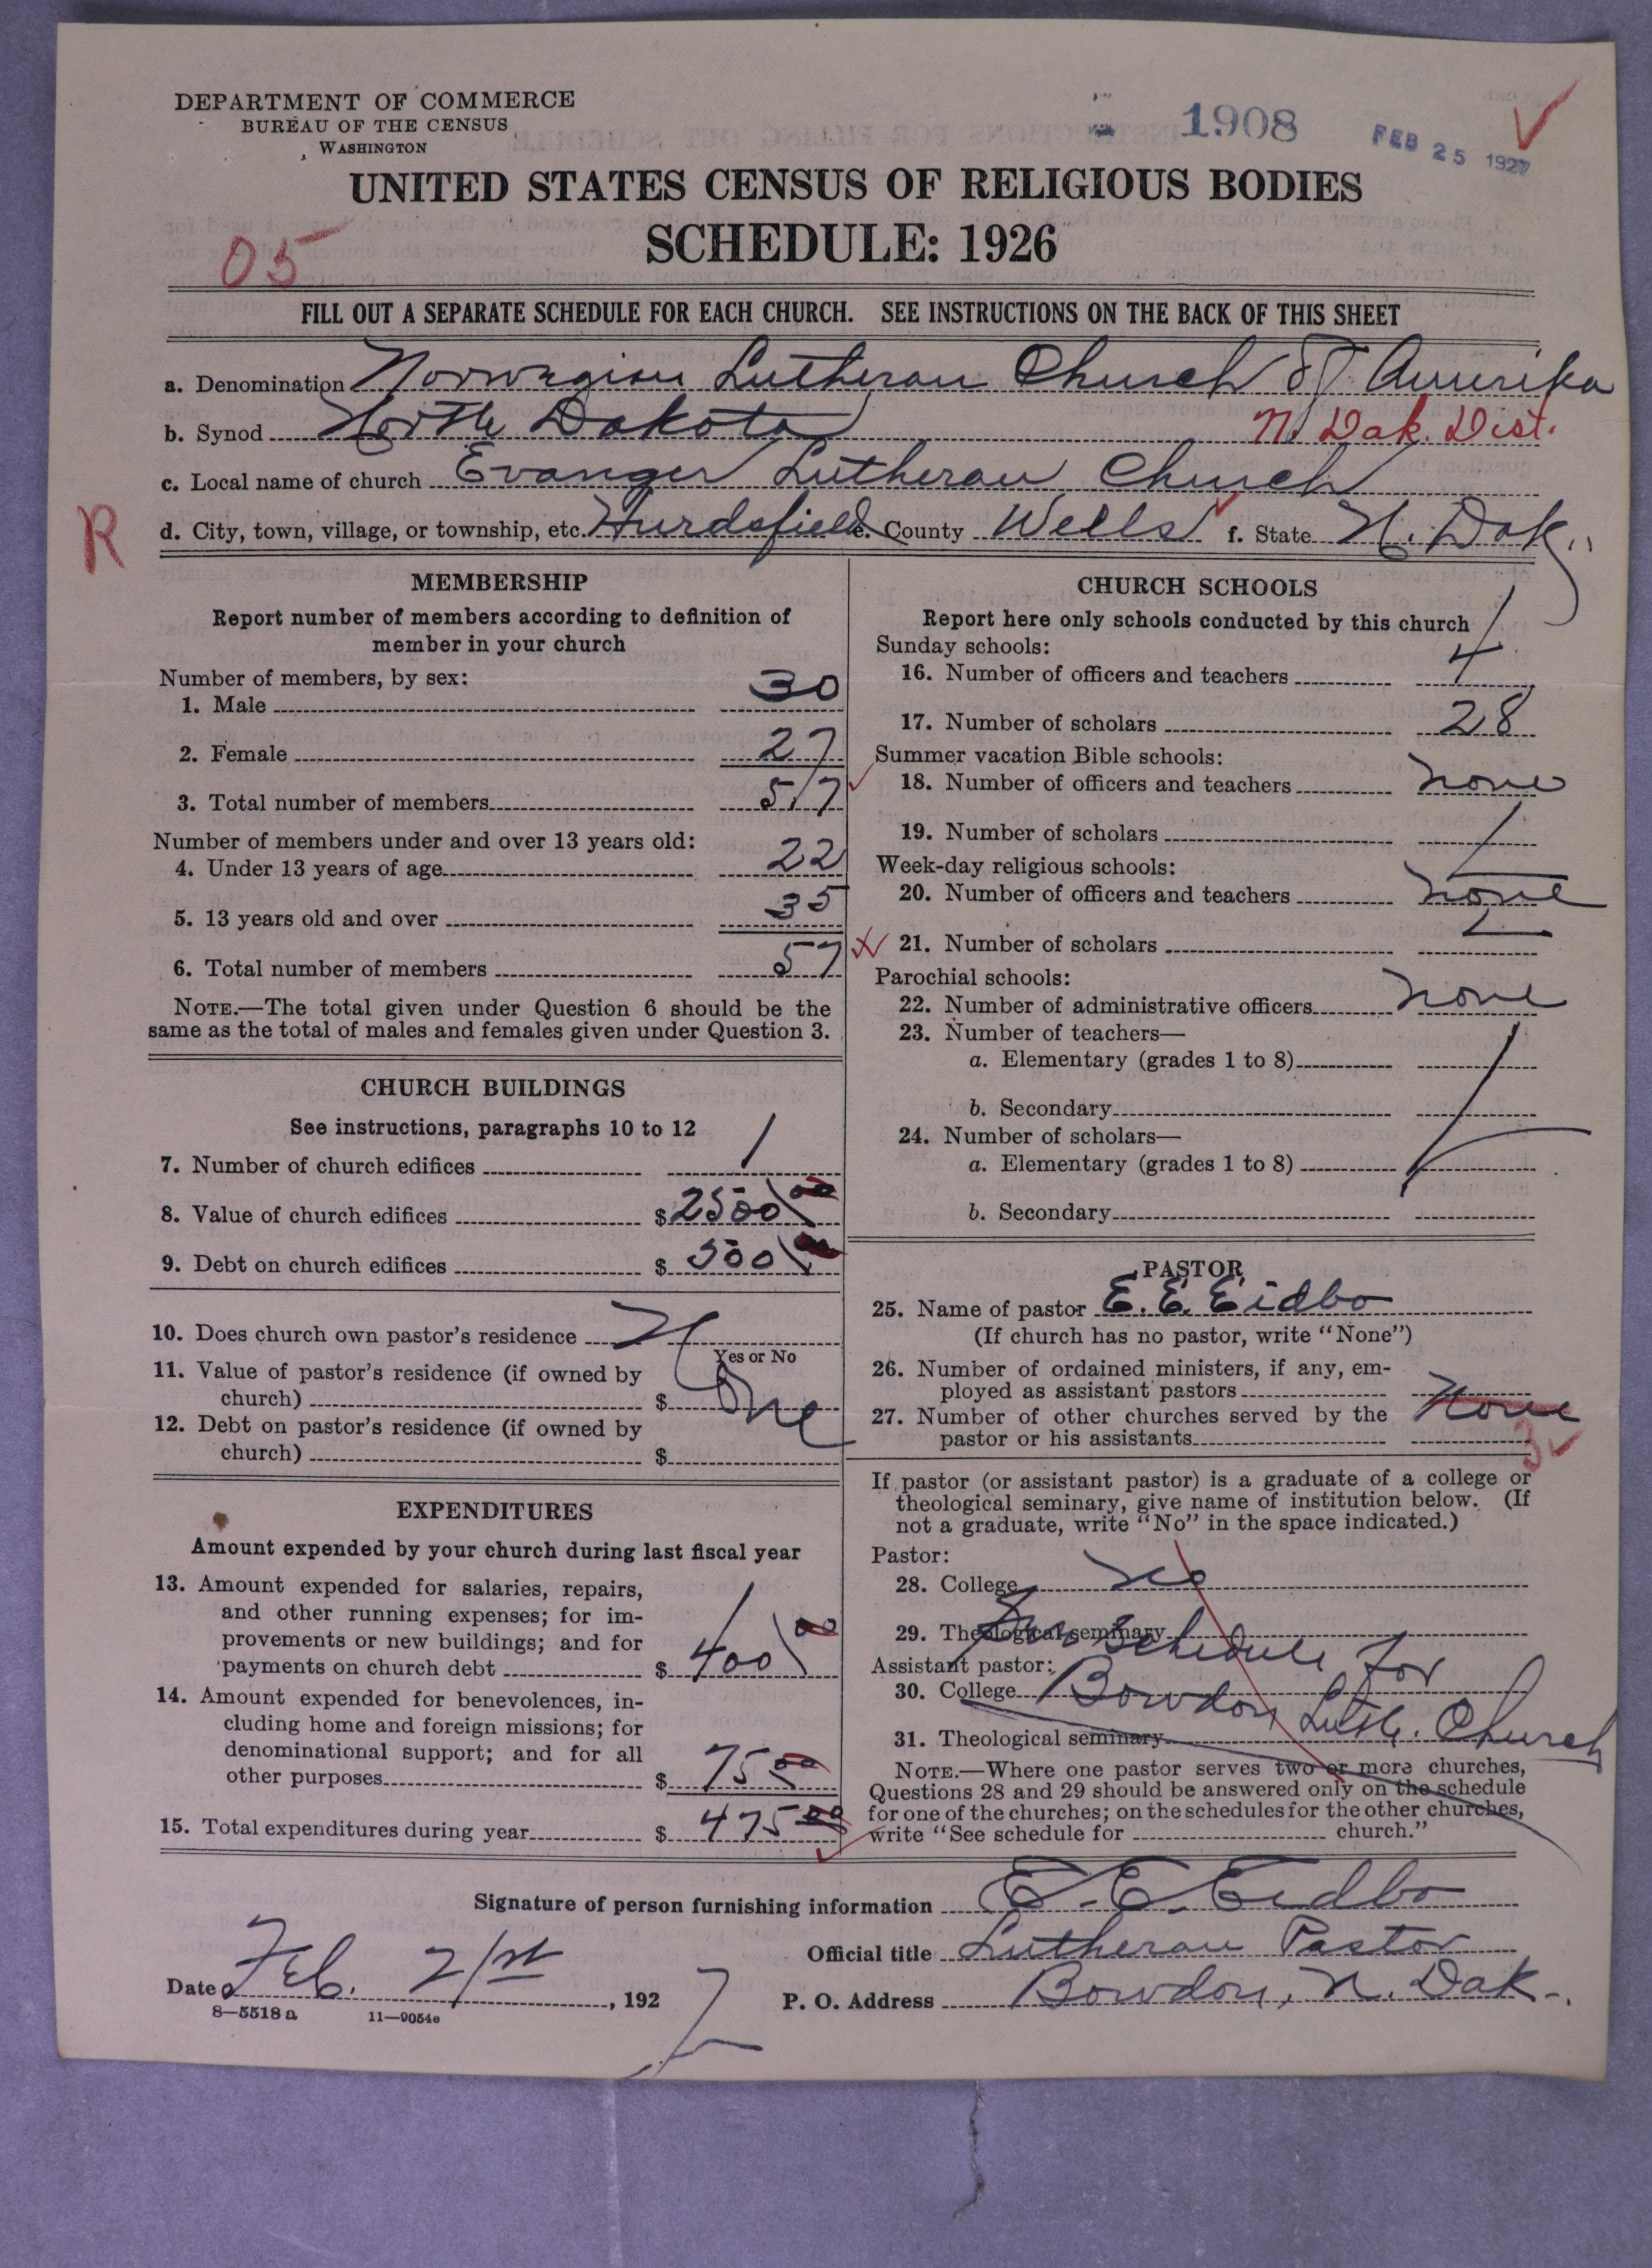 DEPARTMENT OF COMMERCE
BUREAU OF THE CENSUS
WASHINGTON
1908
FEB 25 1927
UNITED STATES CENSUS OF RELIGIOUS BODIES
SCHEDULE: 1926
05
FILL OUT A SEPARATE SCHEDULE FOR EACH CHURCH. SEE INSTRUCTIONS ON THE BACK OF THIS SHEET
a. Denomination Norwegian Lutheran Church of Amerika
b. Synod North Dakota N. Dak. Dist.
c. Local name of church Evanger Lutheran Church
R
d. City, town, village, or township, etc. Hurdsfield e. County Wells f. State N. Dak.
MEMBERSHIP
Report number of members according to definition of
member in your church
Number of members, by sex:
1. Male 30
2. Female 27
3. Total number of members 57
Number of members under and over 13 years old:
4. Under 13 years of age 22
5. 13 years old and over 35
6. Total number of members 57
NOTE.—The total given under Question 6 should be the
same as the total of males and females given under Question 3.
CHURCH BUILDINGS
See instructions, paragraphs 10 to 12
7. Number of church edifices 1
8. Value of church edifices $ 2500 00
9. Debt on church edifices $ 500
10. Does church own pastor's residence
Yes or No
11. Value of pastor's residence (if owned by
church) $
12. Debt on pastor's residence (if owned by
church) $
EXPENDITURES
Amount expended by your church during last fiscal year
13. Amount expended for salaries, repairs,
and other running expenses; for im-
provements or new buildings; and for
payments on church debt $ 400 00
14. Amount expended for benevolences, in-
cluding home and foreign missions; for
denominational support; and for all
other purposes $ 75 00
15. Total expenditures during year $ 475 00
CHURCH SCHOOLS
Report here only schools conducted by this church
Sunday schools:
16. Number of officers and teachers 4
17. Number of scholars 28
Summer vacation Bible schools:
18. Number of officers and teachers none
19. Number of scholars
Week-day religious schools:
20. Number of officers and teachers none
21. Number of scholars
Parochial schools:
22. Number of administrative officers none
23. Number of teachers—
a. Elementary (grades 1 to 8)
b. Secondary
24. Number of scholars—
a. Elementary (grades 1 to 8)
b. Secondary
PASTOR
25. Name of pastor E. E. Eidbo
(If church has no pastor, write "None")
26. Number of ordained ministers, if any, em-
ployed as assistant pastors None
27. Number of other churches served by the
pastor or his assistants 3
If pastor (or assistant pastor) is a graduate of a college or
theological seminary, give name of institution below. (If
not a graduate, write "No" in the space indicated.)
Pastor:
28. College No
29. Theological seminary See Schedule for
Assistant pastor:
30. College Bowdon Luth. Church
31. Theological seminary
NOTE.—Where one pastor serves two or more churches,
Questions 28 and 29 should be answered only on the schedule
for one of the churches; on the schedules for the other churches,
write "See schedule for church."
Signature of person furnishing information E. E. Eidbo
Official title Lutheran Pastor
Date Feb. 21st, 1927
P. O. Address Bowdon, N. Dak.
8—5518 a 11—9054e